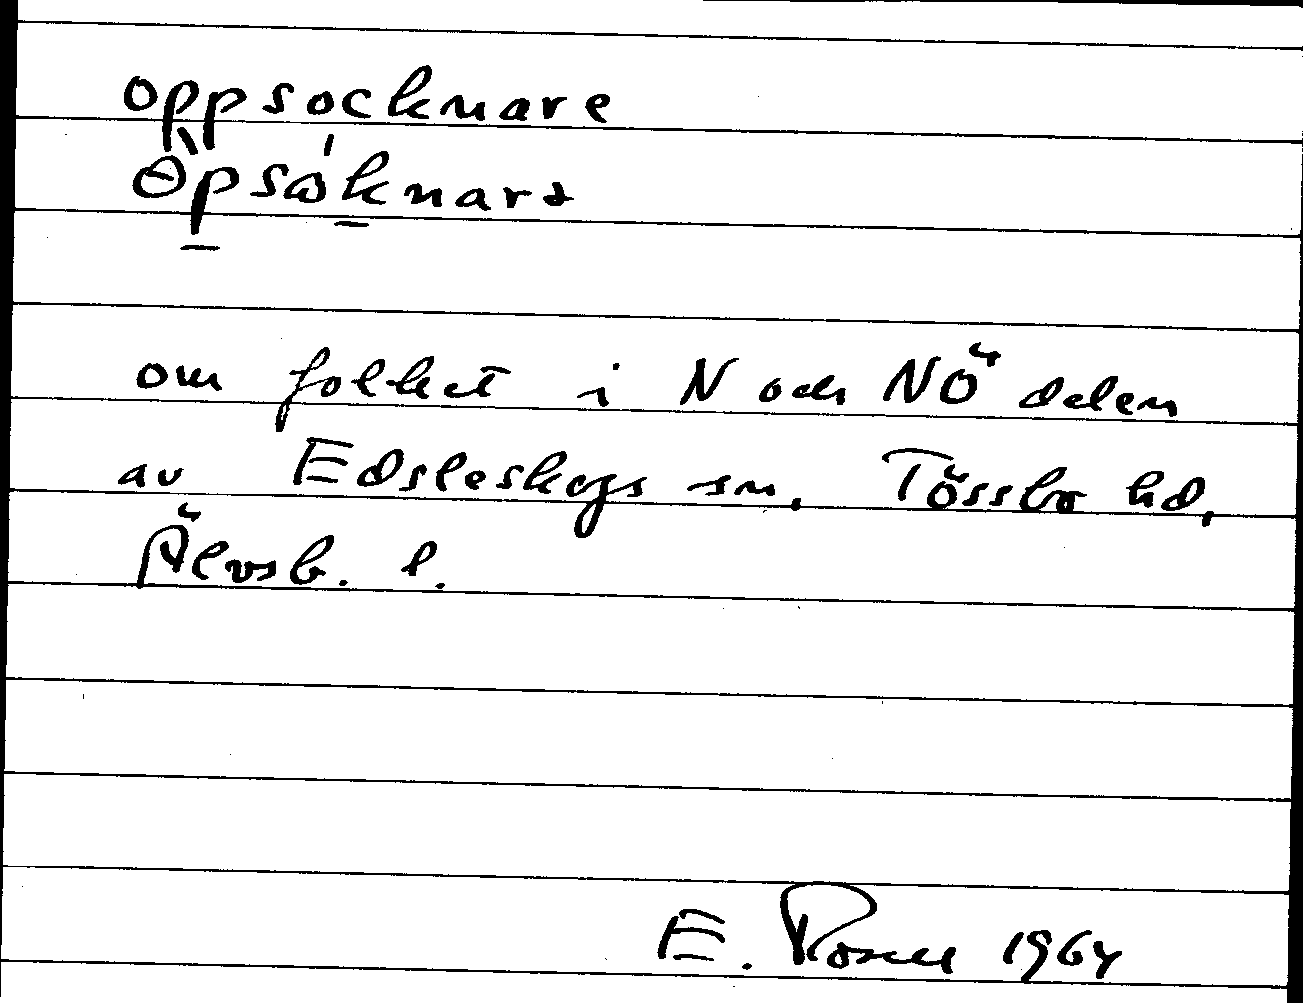 oppsocknare
om folket i N och NÖ delen
av Edsleskogs sn, Tössbo hd,
Älvsb. l.
E. Rosell 1964